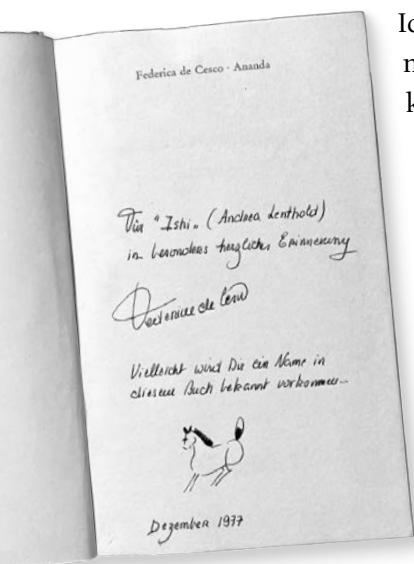 Federica de Cesco · Ananda
Für "Ishi" (Andrea Lenthold)
in besonders herzlicher Erinnerung
Federica de Cesco
Vielleicht wird Dir ein Name in
diesem Buch bekannt vorkommen...
Dezember 1977